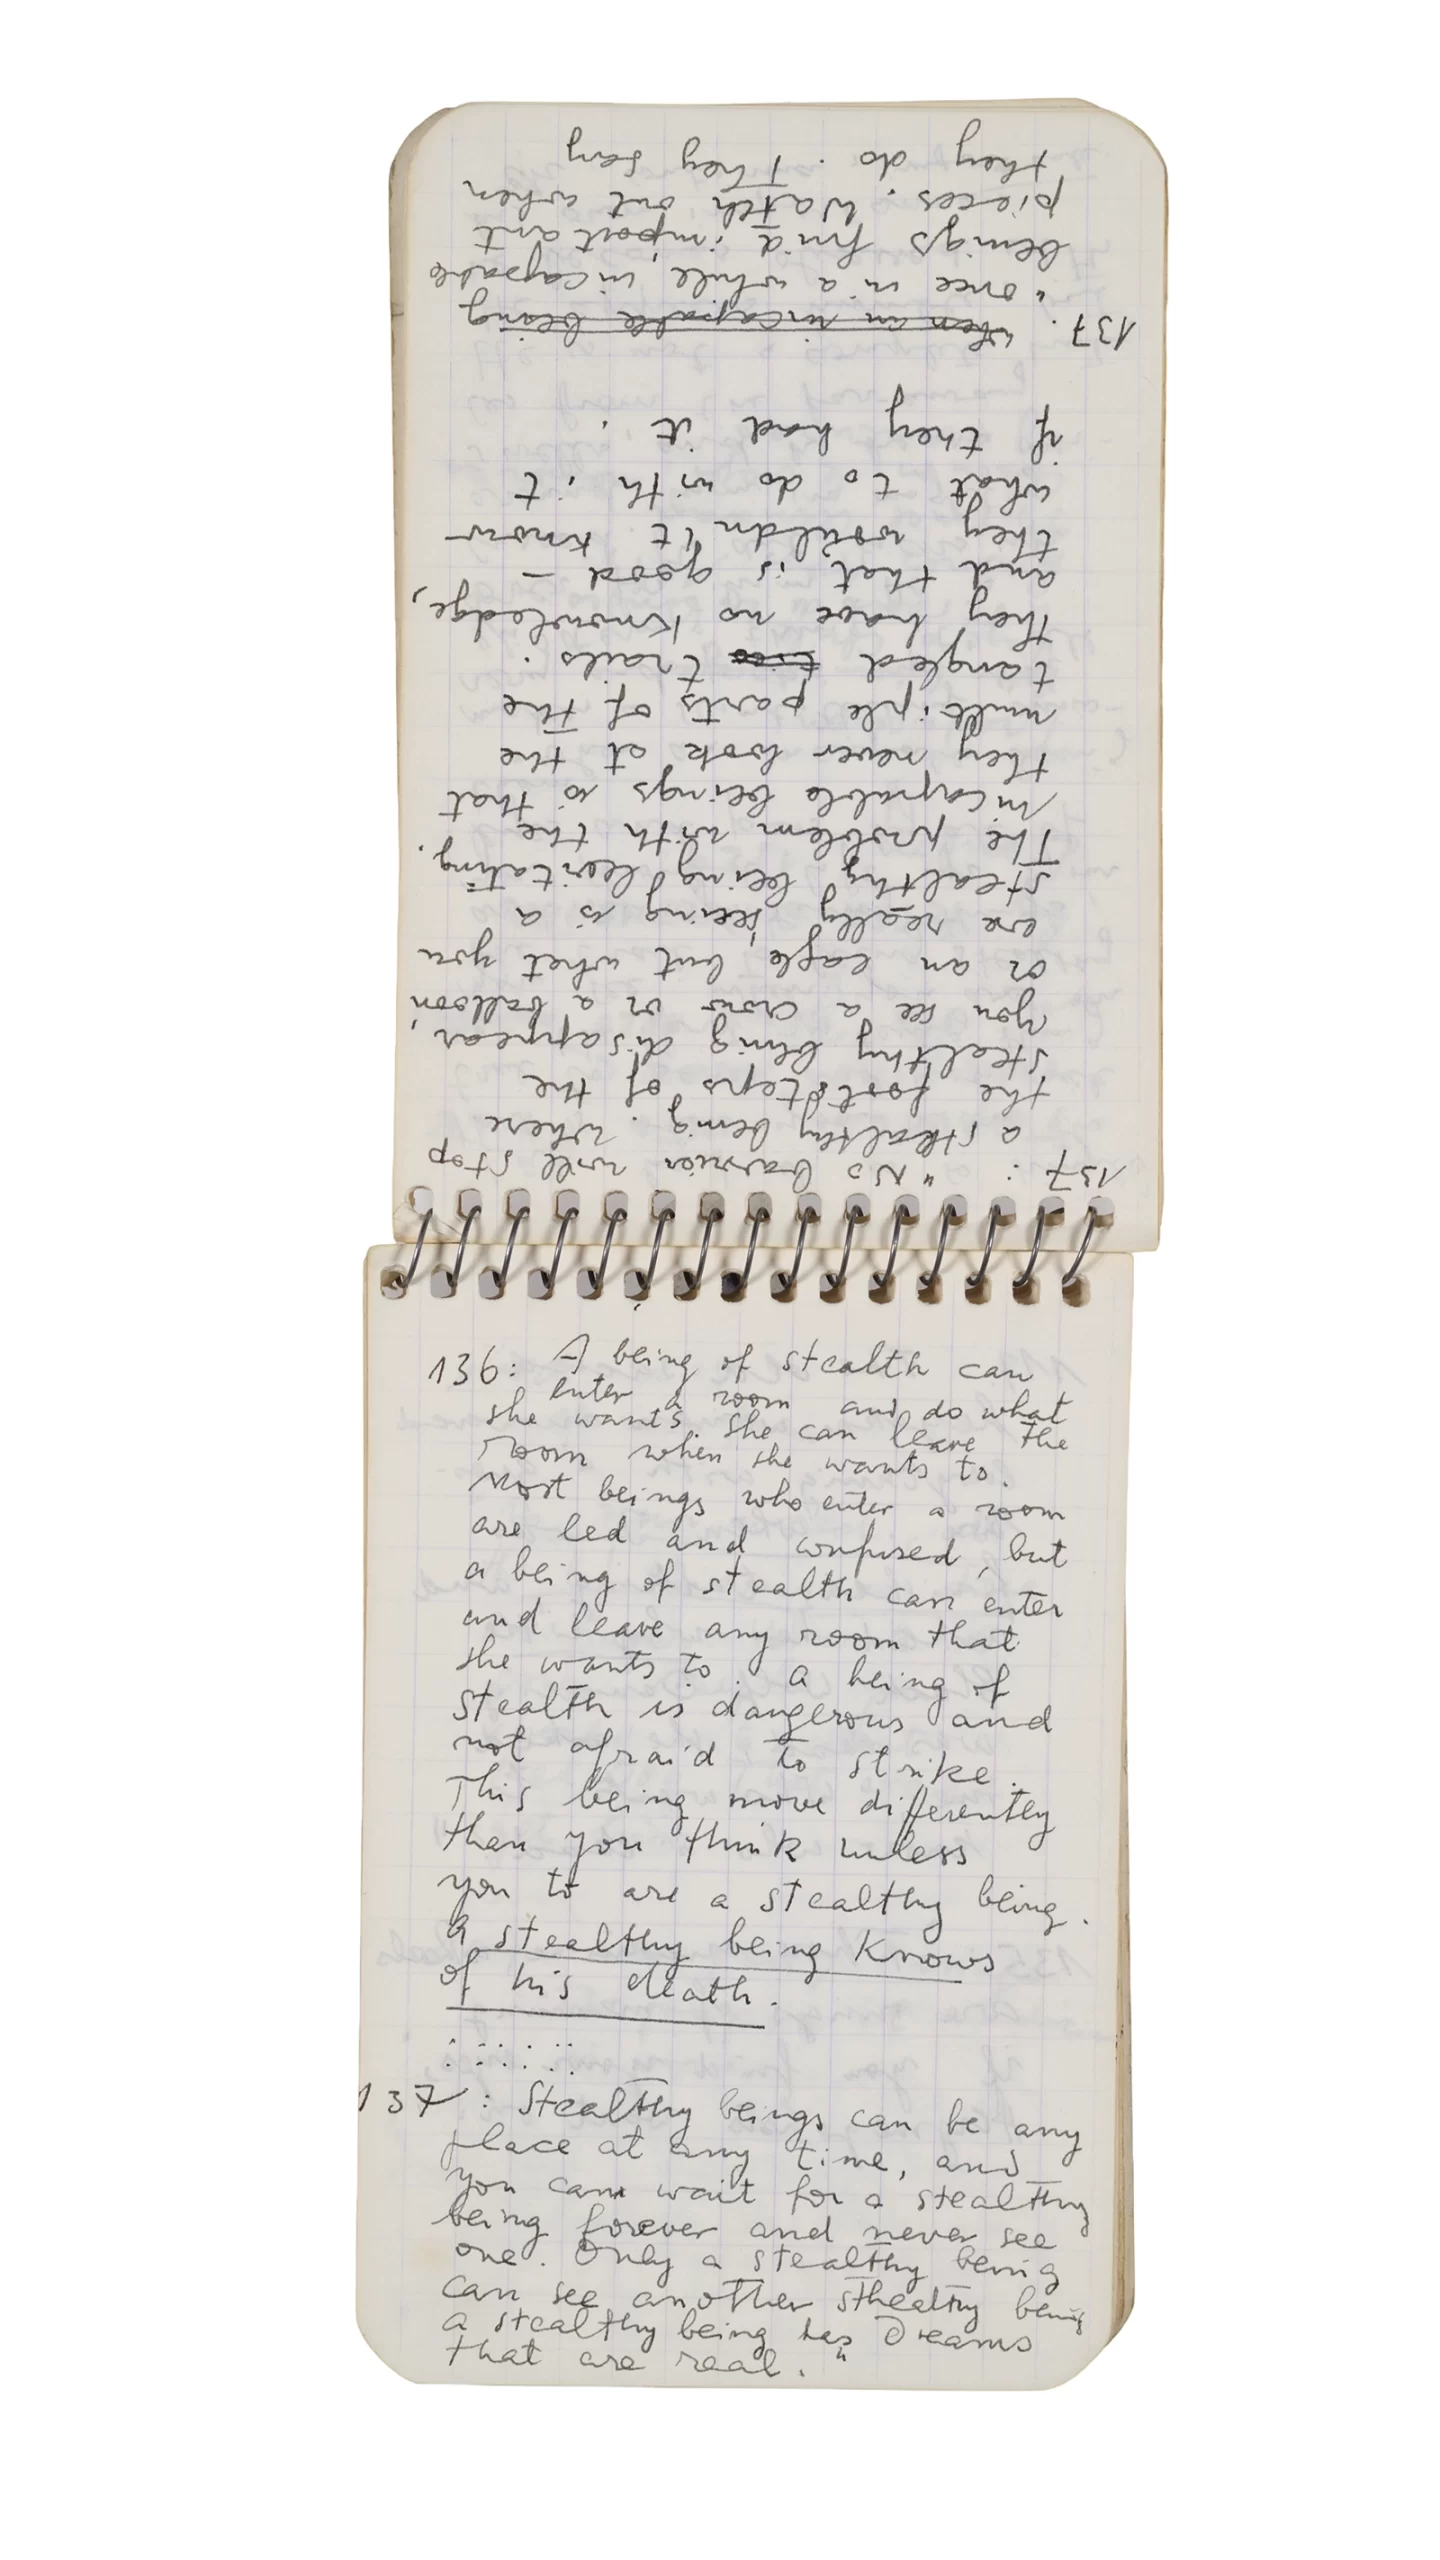 136: A being of stealth can
enter a room and do what
she wants. She can leave the
room when she wants to.
Most beings who enter a room
are led and confused, but
a being of stealth can enter
and leave any room that
she wants to. A being of
stealth is dangerous and
not afraid to strike.
This being move differently
than you think unless
you to are a stealthy being.
A stealthy being knows
of his death.
137: Stealthy beings can be any
place at any time, and
you can wait for a stealthy
being forever and never see
one. Only a stealthy being
can see another sthealthy being
a stealthy being has Dreams
that are real."
137: "No barrier will stop
a stealthy being. Where
the footsteps of the
stealthy being disappear,
you see a crow or a balloon,
or an eagle, but what you
are really seeing is a
stealthy being levitating.
The problem with the
incapable beings is that
they never look at the
multiple parts of the
tangled trails.
they have no knowledge,
and that is good –
they wouldn't know
what to do with it
if they had it.
137. when an incapable being
"once in a while, incapable
beings find important
pieces. Watch out when
they do. They say